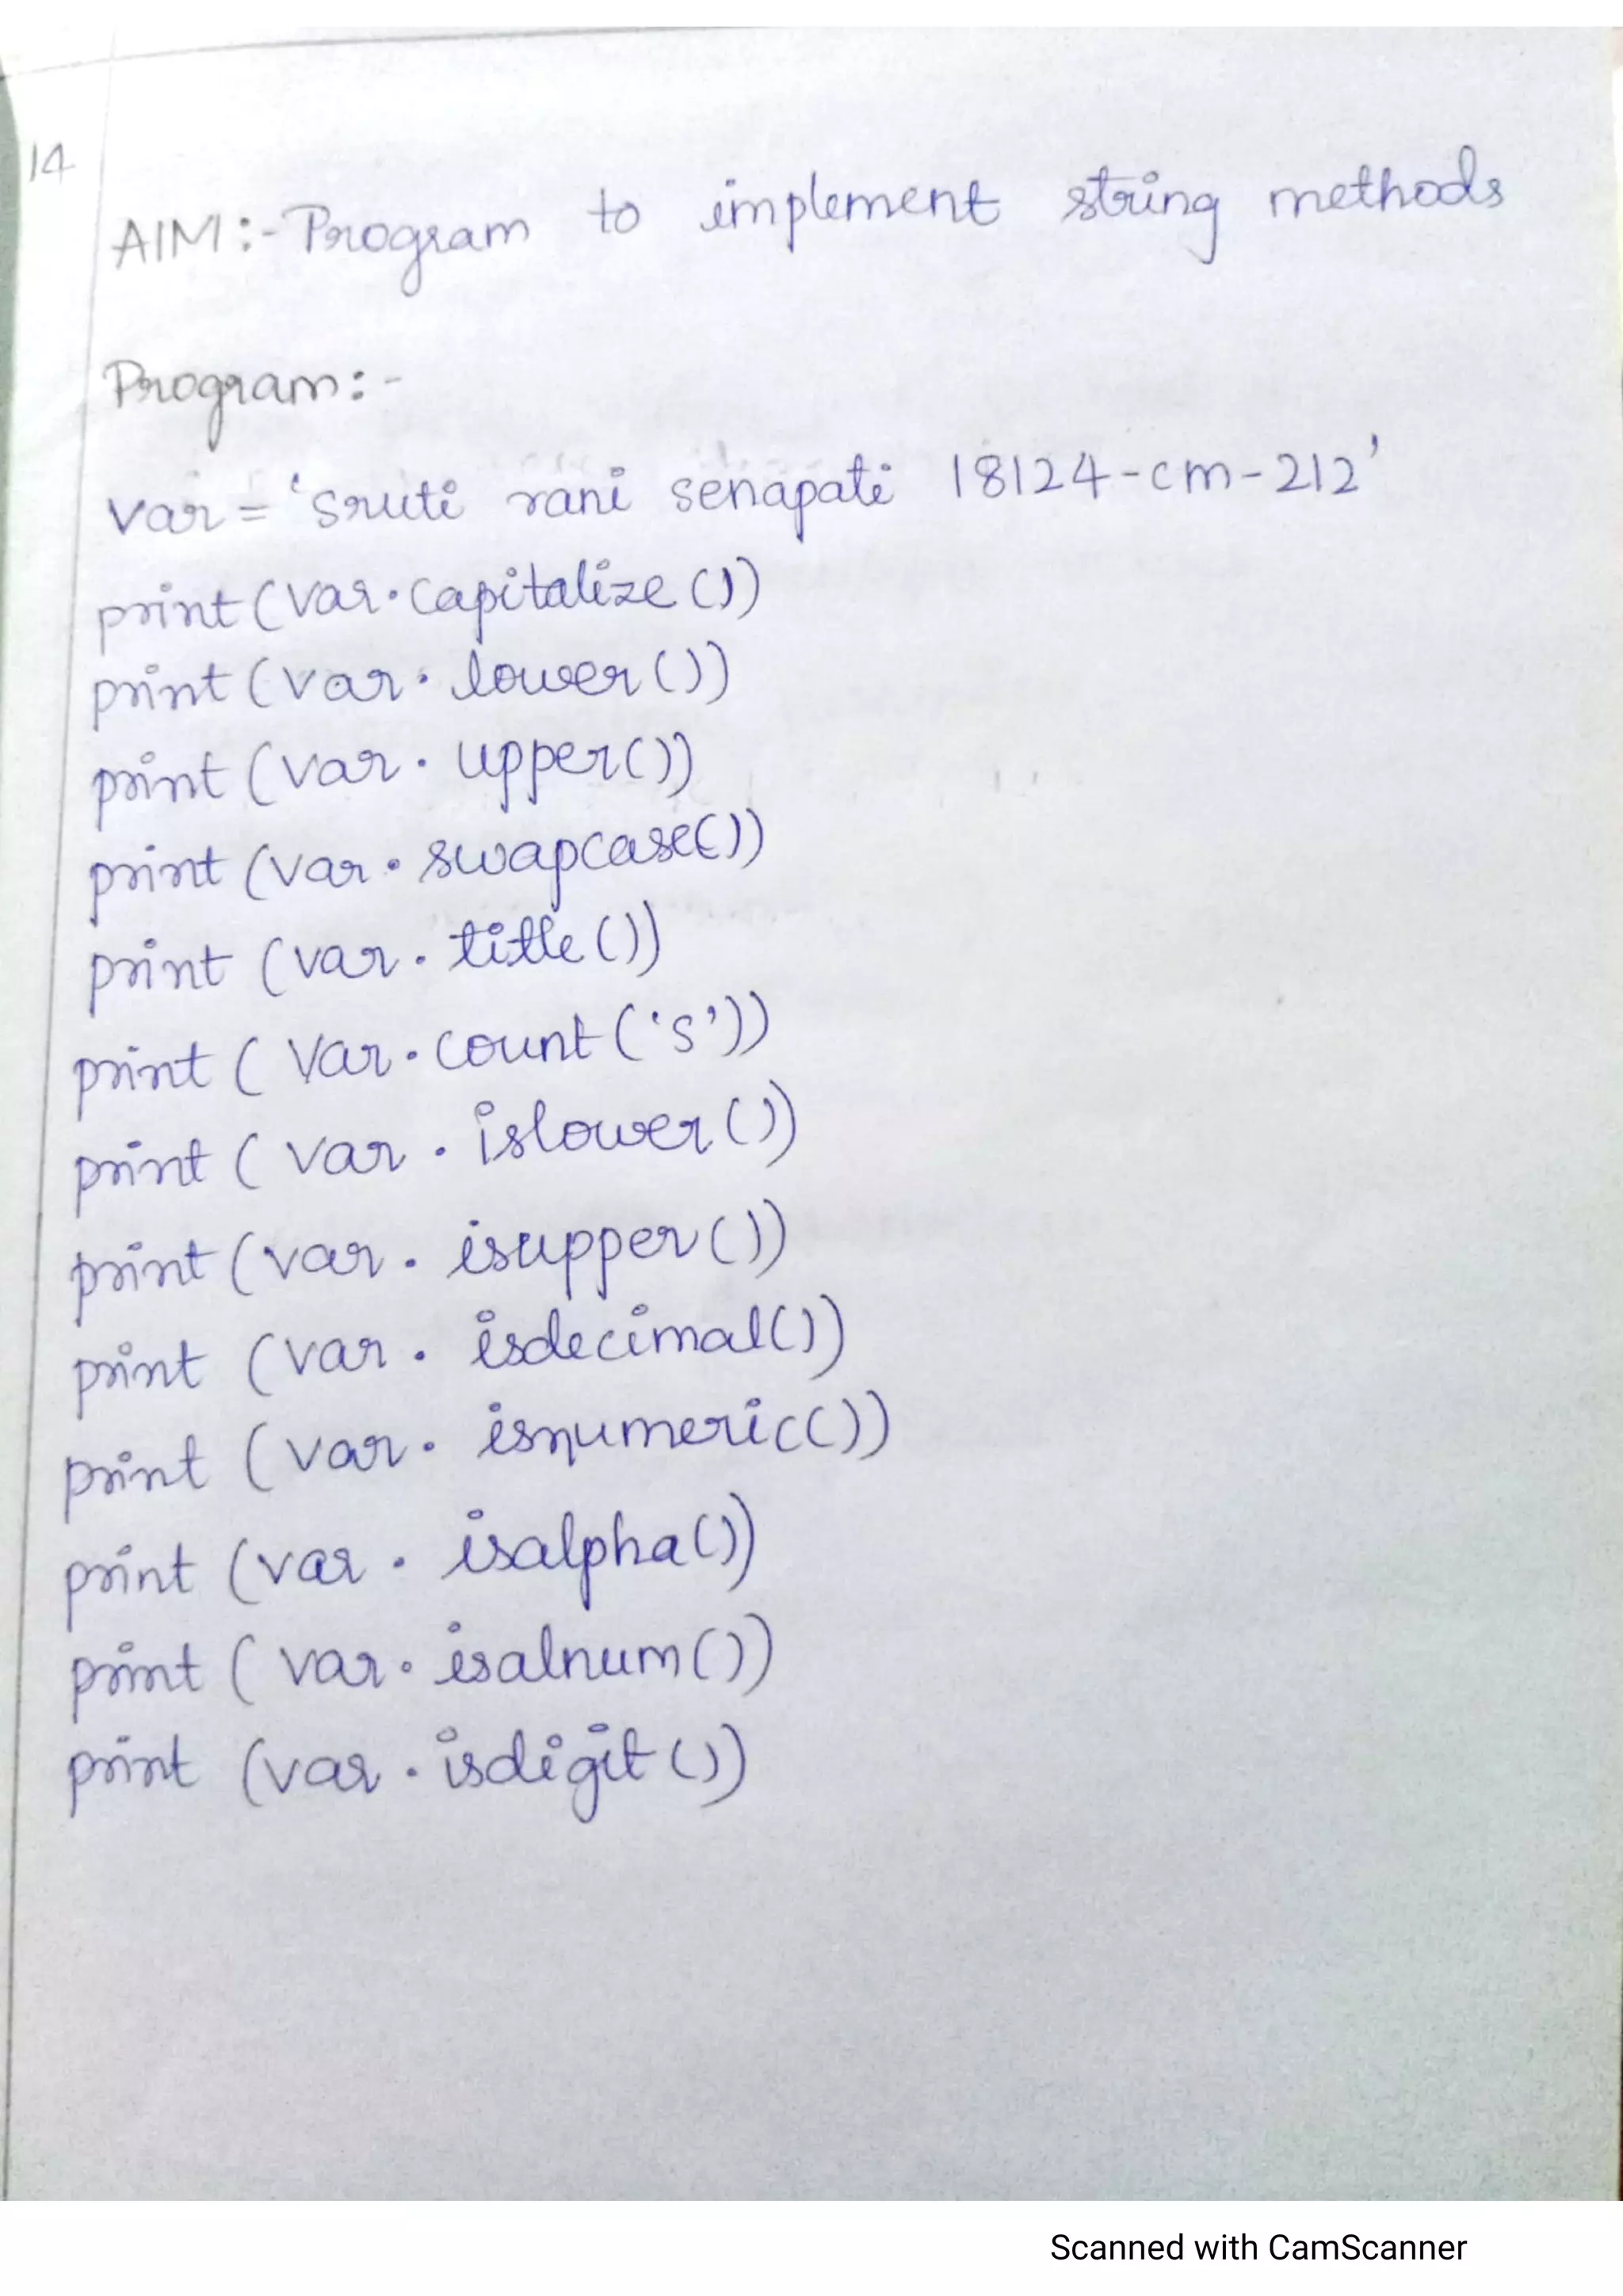 14
AIM:- Program to implement string methods
Program:-
var = 'sruti rani senapati 18124-cm-212'
print(var.capitalize())
print(var.lower())
print(var.upper())
print(var.swapcase())
print(var.title())
print(var.count('s'))
print(var.islower())
print(var.isupper())
print(var.isdecimal())
print(var.isnumeric())
print(var.isalpha())
print(var.isalnum())
print(var.isdigit())
Scanned with CamScanner